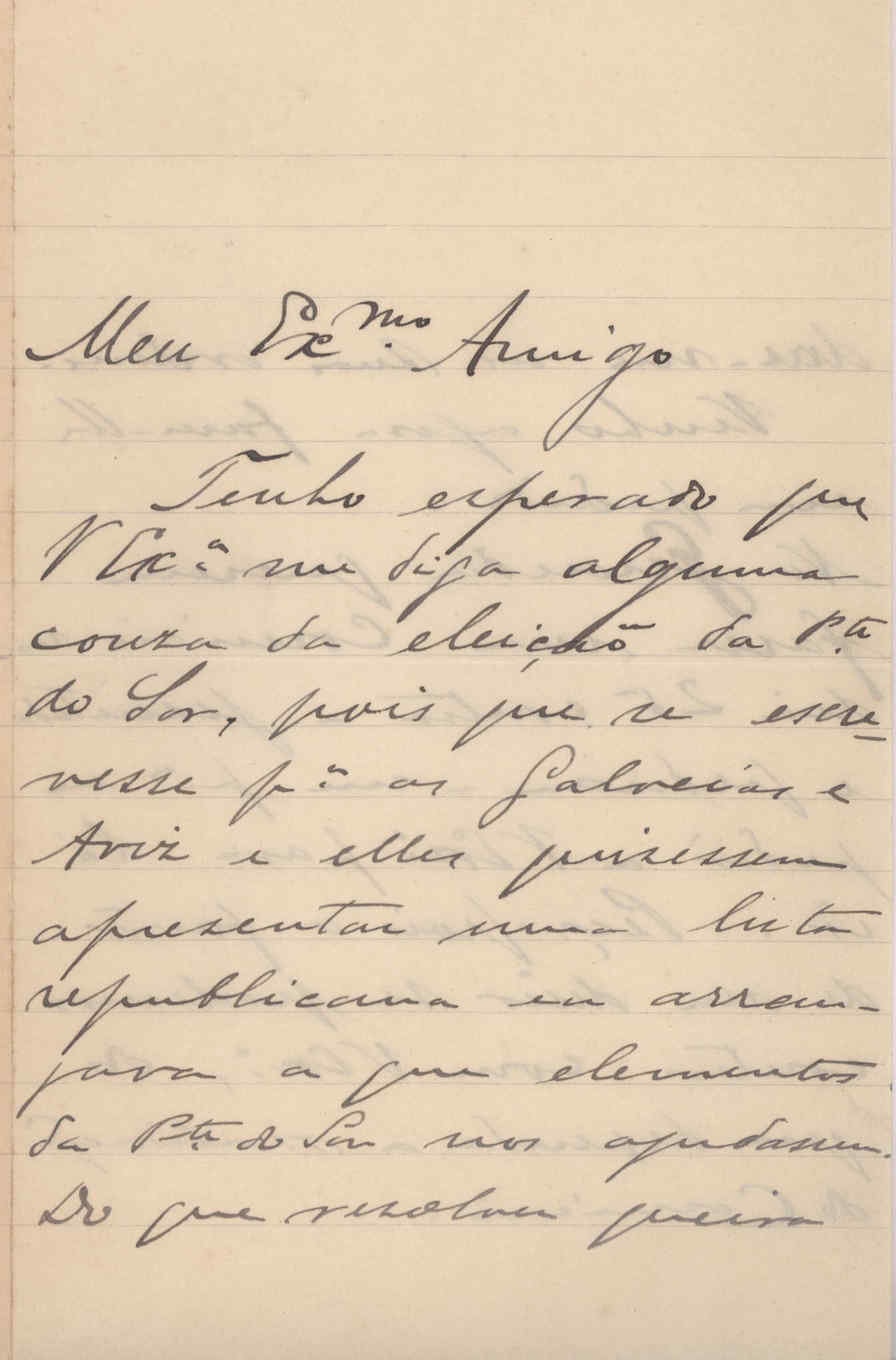 Meu Ex.mo Amigo
Tenho esperado que
V Ex.a me diga alguma
couza da eleição da P.ta
do Sor, pois que se escre-
vesse p.a as Galveias e
Aviz e elles quizessem
apresentar uma lista
republicana eu arran-
java a que elementos
da P.te do Sor nos ajudassem.
Do que resolver queira